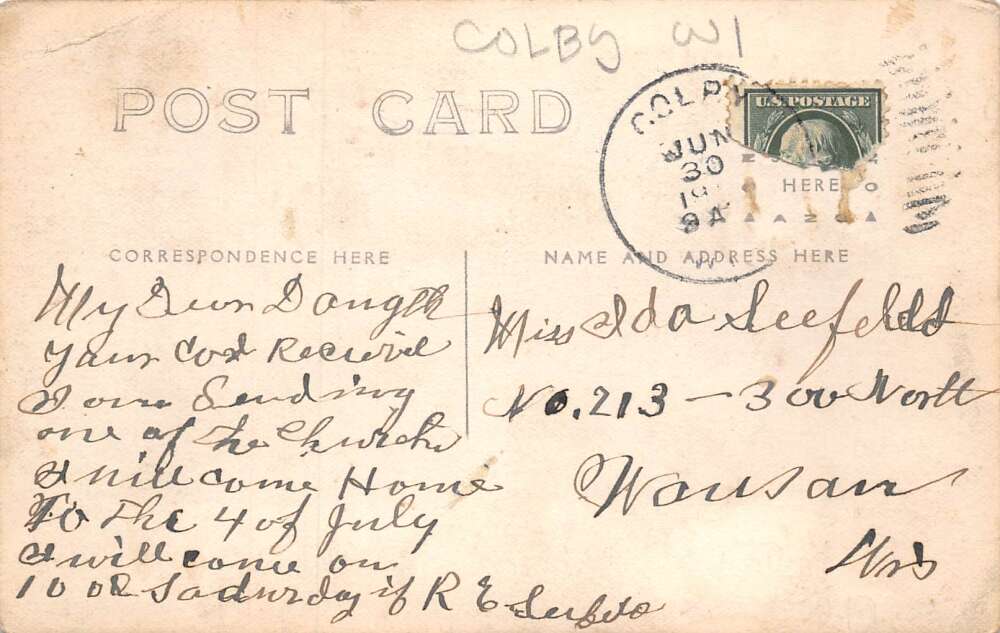 COLBY WI
POST CARD
COLBY
JUN
30
19
9A
WI
U.S. POSTAGE
HERE
CORRESPONDENCE HERE
NAME AND ADDRESS HERE
My Dear Daugth
your Card Recieved
I am Sending
one of the Church
I will come Home
To The 4 of July
I will come on
10 o Saturday if R E
Miss Ida Seefeldt
No. 213 - 3 North
Wausau
Wis